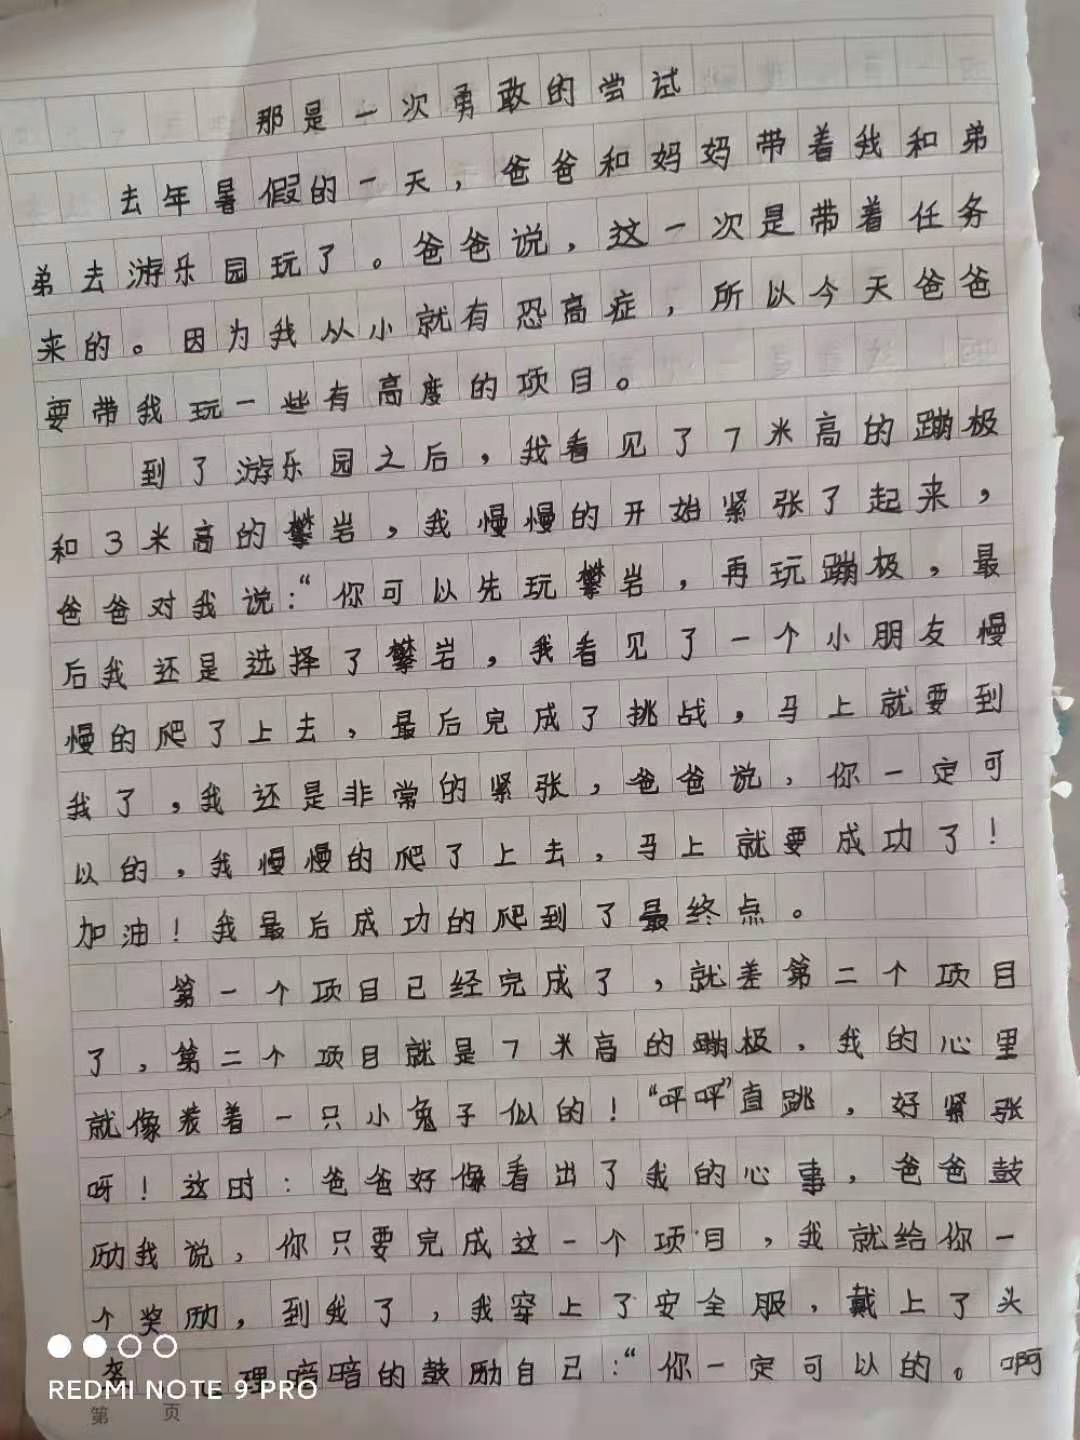 那是一次勇敢的尝试
去年暑假的一天，爸爸和妈妈带着我和弟
弟去游乐园玩了。爸爸说，这一次是带着任务
来的。因为我从小就有恐高症，所以今天爸爸
要带我玩一些有高度的项目。
到了游乐园之后，我看见了7米高的蹦极
和3米高的攀岩，我慢慢的开始紧张了起来，
爸爸对我说：“你可以先玩攀岩，再玩蹦极，最
后我还是选择了攀岩，我看见了一个小朋友慢
慢的爬了上去，最后完成了挑战，马上就要到
我了，我还是非常的紧张，爸爸说，你一定可
以的，我慢慢的爬了上去，马上就要成功了！
加油！我最后成功的爬到了最终点。
第一个项目已经完成了，就差第二个项目
了，第二个项目就是7米高的蹦极，我的心里
就像装着一只小兔子似的！“呯呯”直跳，好紧张
呀！这时：爸爸好像看出了我的心事，爸爸鼓
励我说，你只要完成这一个项目，我就给你一
个奖励，到我了，我穿上了安全服，戴上了头
理暗暗的鼓励自己：“你一定可以的。啊
REDMI NOTE 9 PRO
第 页